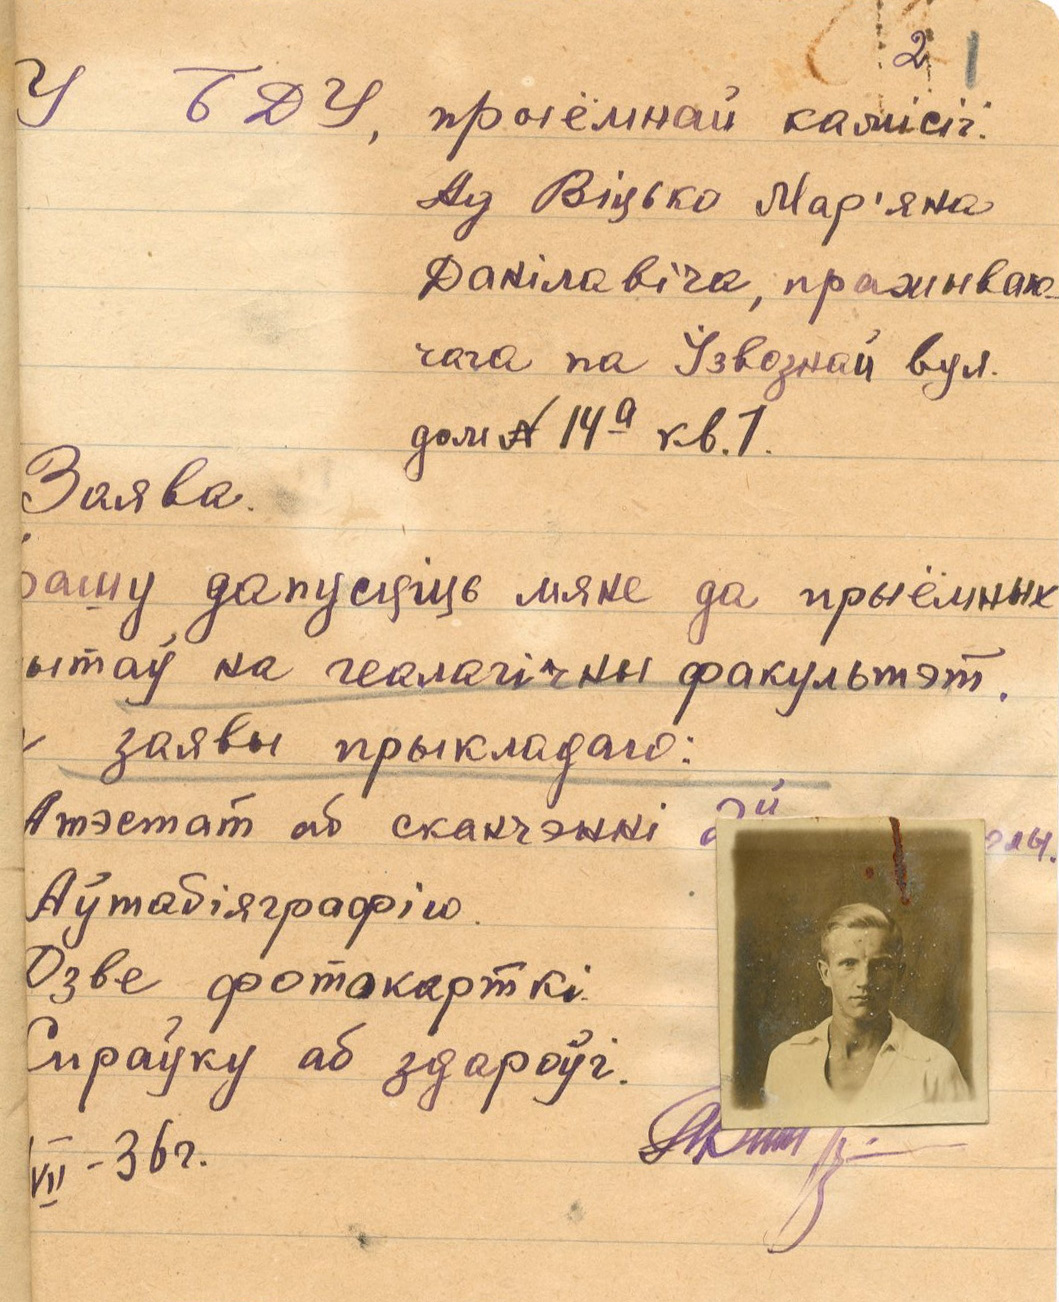 2 1
У БДУ, прыёмнай камісіі.
Ад Віцько Мар'яна
Данілавіча, пражываю-
чага па Ізвознай вул.
дом № 14а кв. 1.
Заява.
рашу дапусціць мяне да прыёмных
ытаў на геалагічны факультэт.
заявы прыкладаю:
Атэстат аб сканчэнні
Аўтабіяграфію.
Дзве фотакарткі.
Спраўку аб здароўі.
VII - 36 г.